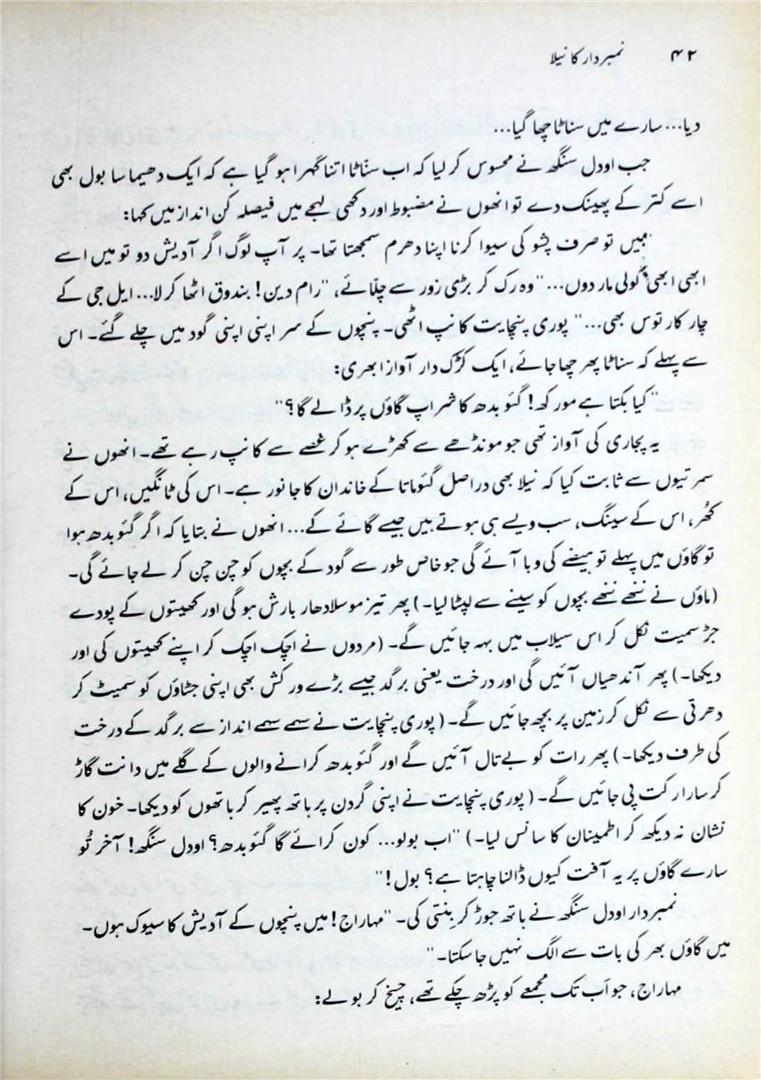 ۴۲ نمبردار کا نیلا
دیا... سارے میں سناٹا چھا گیا...
جب اودل سنگھ نے محسوس کر لیا کہ اب سنّاٹا اتنا گہرا ہو گیا ہے کہ ایک دھیما سا بول بھی
اسے کتر کے پھینک دے تو انھوں نے مضبوط اور دکھی لہجے میں فیصلہ کن انداز میں کہا:
"میں تو صرف پشو کی سیوا کرنا اپنا دھرم سمجھتا تھا۔ پر آپ لوگ اگر آدیش دو تو میں اسے
ابھی ابھی گولی مار دوں..." وہ رک کر بڑی زور سے چلّائے، "رام دین! بندوق اٹھا کر لا... ایل جی کے
چار کارتوس بھی..." پوری پنچایت کانپ اٹھی۔ پنچوں کے سر اپنی اپنی گود میں چلے گئے۔ اس
سے پہلے کہ سناٹا پھر چھا جائے، ایک کڑک دار آواز ابھری:
"کیا بکتا ہے مورکھ! گئو بدھ کا شراپ گاؤں پر ڈالے گا؟"
یہ پجاری کی آواز تھی جو مونڈھے سے کھڑے ہو کر غصے سے کانپ رہے تھے۔ انھوں نے
سمرتیوں سے ثابت کیا کہ نیلا بھی دراصل گئوماتا کے خاندان کا جانور ہے۔ اس کی ٹانگیں، اس کے
کھُر، اس کے سینگ، سب ویسے ہی ہوتے ہیں جیسے گائے کے... انھوں نے بتایا کہ اگر گئو بدھ ہوا
تو گاؤں میں پہلے تو ہیضے کی وبا آئے گی جو خاص طور سے گود کے بچوں کو چن چن کر لے جائے گی۔
(ماؤں نے ننھے ننھے بچوں کو سینے سے لپٹا لیا۔) پھر تیز موسلادھار بارش ہو گی اور کھیتوں کے پودے
جڑ سمیت نکل کر اس سیلاب میں بہہ جائیں گے۔ (مردوں نے اچک اچک کر اپنے کھیتوں کی اور
دیکھا۔) پھر آندھیاں آئیں گی اور درخت یعنی برگد جیسے بڑے ورکش بھی اپنی جٹاؤں کو سمیٹ کر
دھرتی سے نکل کر زمین پر بچھ جائیں گے۔ (پوری پنچایت نے سہمے سہمے انداز سے برگد کے درخت
کی طرف دیکھا۔) پھر رات کو بے تال آئیں گے اور گئو بدھ کرانے والوں کے گلے میں دانت گاڑ
کر سارا رکت پی جائیں گے۔ (پوری پنچایت نے اپنی گردن پر ہاتھ پھیر کر ہاتھوں کو دیکھا۔ خون کا
نشان نہ دیکھ کر اطمینان کا سانس لیا۔) "اب بولو... کون کرائے گا گئو بدھ؟ اودل سنگھ! آخر تُو
سارے گاؤں پر یہ آفت کیوں ڈالنا چاہتا ہے؟ بول!"
نمبردار اودل سنگھ نے ہاتھ جوڑ کر بنتی کی۔ "مہاراج! میں پنچوں کے آدیش کا سیوک ہوں۔
میں گاؤں بھر کی بات سے الگ نہیں جا سکتا۔"
مہاراج، جو اَب تک مجمعے کو پڑھ چکے تھے، چیخ کر بولے: